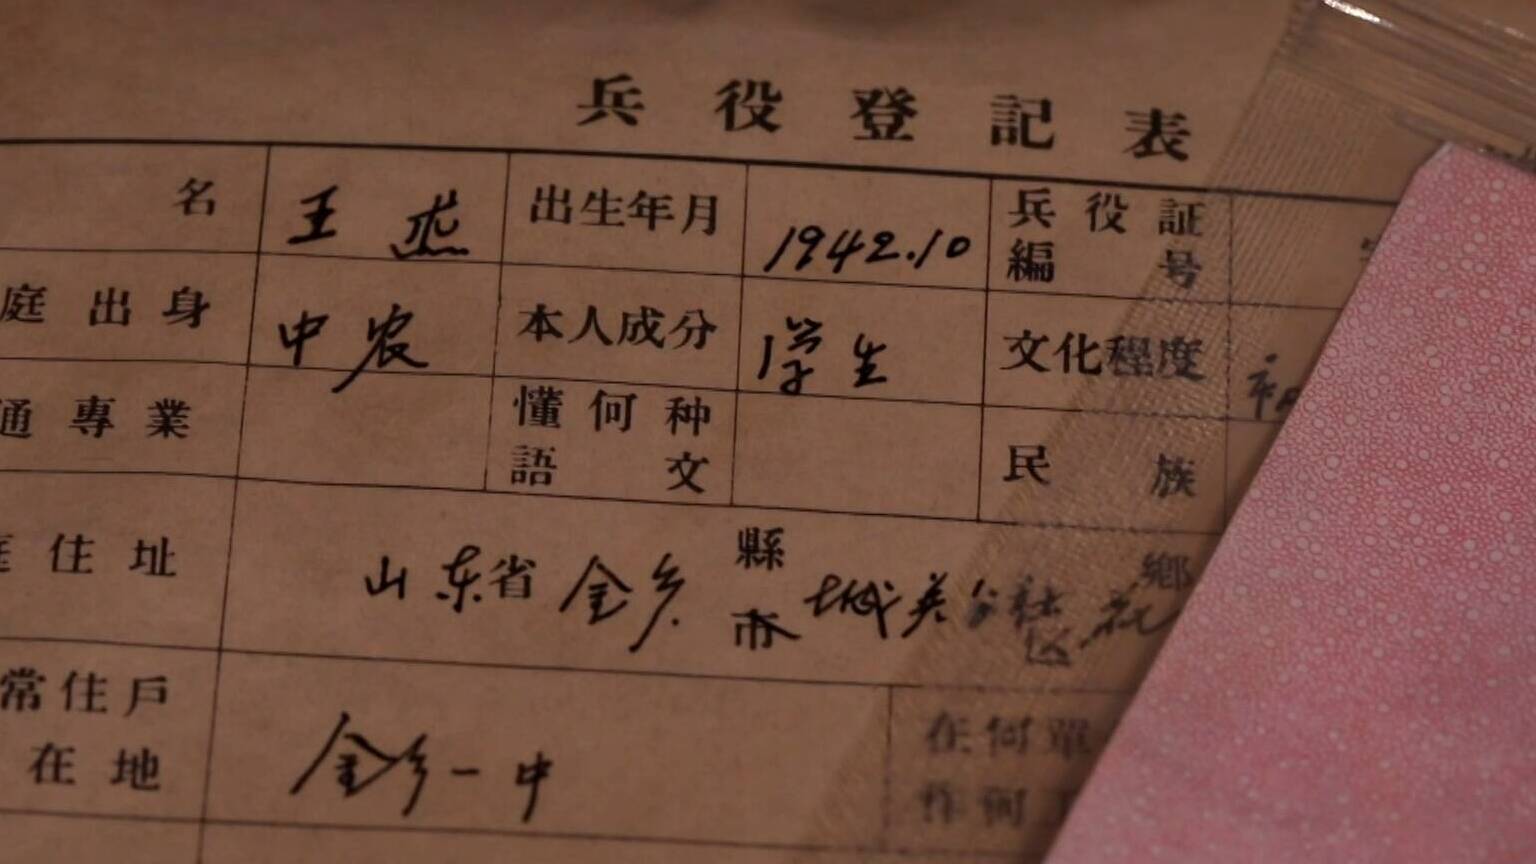 兵役登記表
名 王 出生年月 1942.10 兵役証編号
庭出身 中农 本人成分 学生 文化程度
通專業 懂何种語文 民族
住址 山东省金乡縣市城关公社区鄉
常住戶在地 金乡一中 在何單
作何